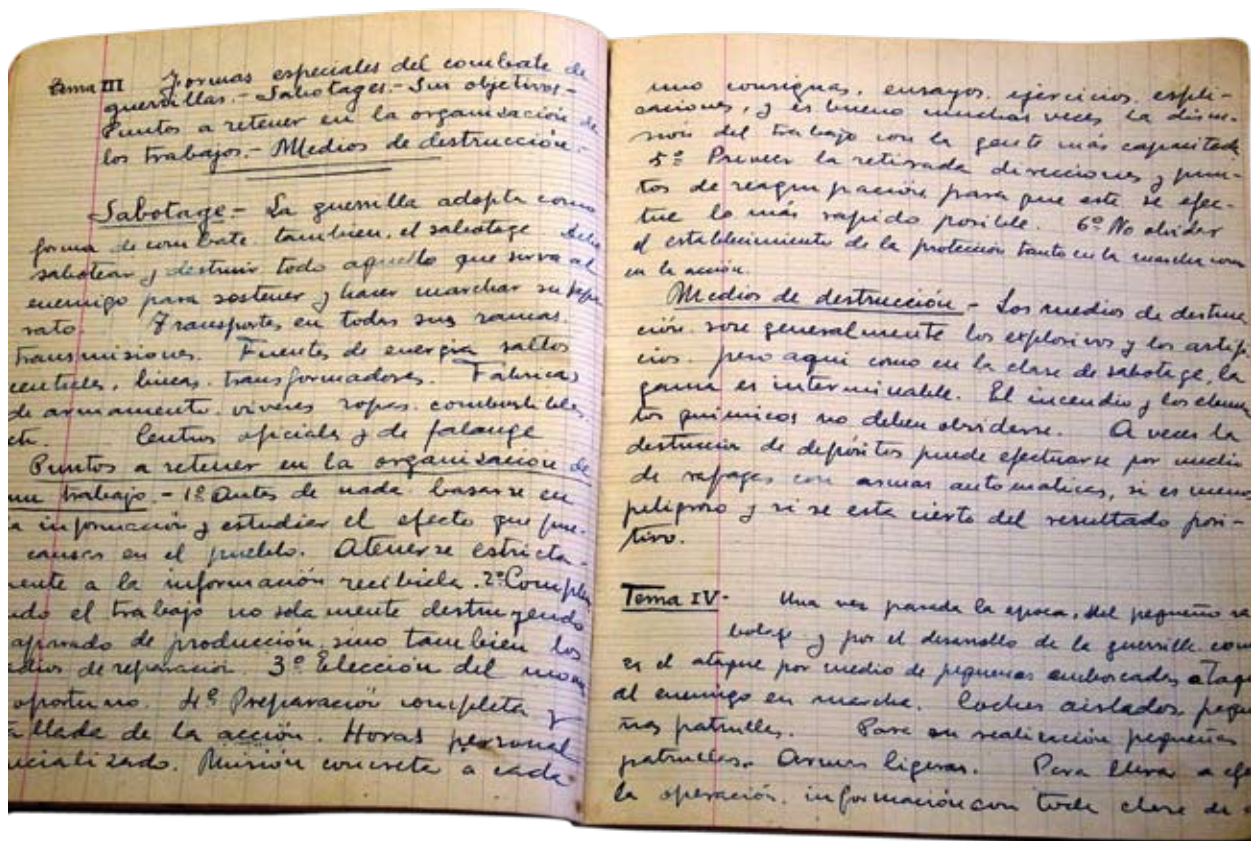 Tema III Formas especiales del combate de
guerrillas.- Sabotages.- Sus objetivos-
Puntos a retener en la organisación de
los trabajos.- Medios de destrucción.-
Sabotage.- La guerrilla adopta como
forma de combate. tambien, el sabotage debe
sabotear y destruir todo aquello que sirva al
enemigo para sostener y hacer marchar su
rato. Transportes en todas sus ramas.
transmisiones. Fuentes de energia saltos
centrales, lineas. transformadores. Fabricas
de armamento. viveres ropas. combustibles.
etc. Centros oficiales y de falange
Puntos a retener en la organisación de
un trabajo.- 1º Antes de nada. basarse en
a información y estudier el efecto que pue-
causar en el pueblo. Atenerse estricta-
mente a la información recibida. 2º
ndo el trabajo no sola mente destruyendo
de producción, sino tambien los
dios de reparación. 3º Elección del mom
oportuno. 4º Preparación completa y
allada de la acción. Horas personal
ecializado. Misión concreta a cada
uno consignas, ensayos. ejercicios. espli-
caciones, y es bueno muchas veces la discu-
sión del trabajo con la gente más capacitada
5º Preveer la retirada direcciones y pun-
tos de reagrupación para que esta se efec-
tue lo más rapido posible. 6º No olvidar
el establecimiento de la protección tanto en la marcha como
en la acción.
Medios de destrucción - Los medios de destruc
ción. son generalmente los explosivos y los artifi
cios. pero aqui como en la clase de sabotage, la
gama es interminable. El incendio y los elemen
tos quimicos no deben olvidarse. A veces la
destrucción de depósitos puede efectuarse por medio
de rafages con armas automaticas, si es menos
peligroso y si se esta cierto del resultado posi-
tivo.
Tema IV- Una vez pasada la epoca, del pequeño sa
botage y por el desarrollo de la guerrilla. com
es el ataque por medio de pequeñas emboscadas ataq
al enemigo en marcha. Coches aislados, pequ
ñas patrullas. Para su realización pequeñas
patrullas. Armas ligeras. Para llevar a efe
la operación. información con toda clase de